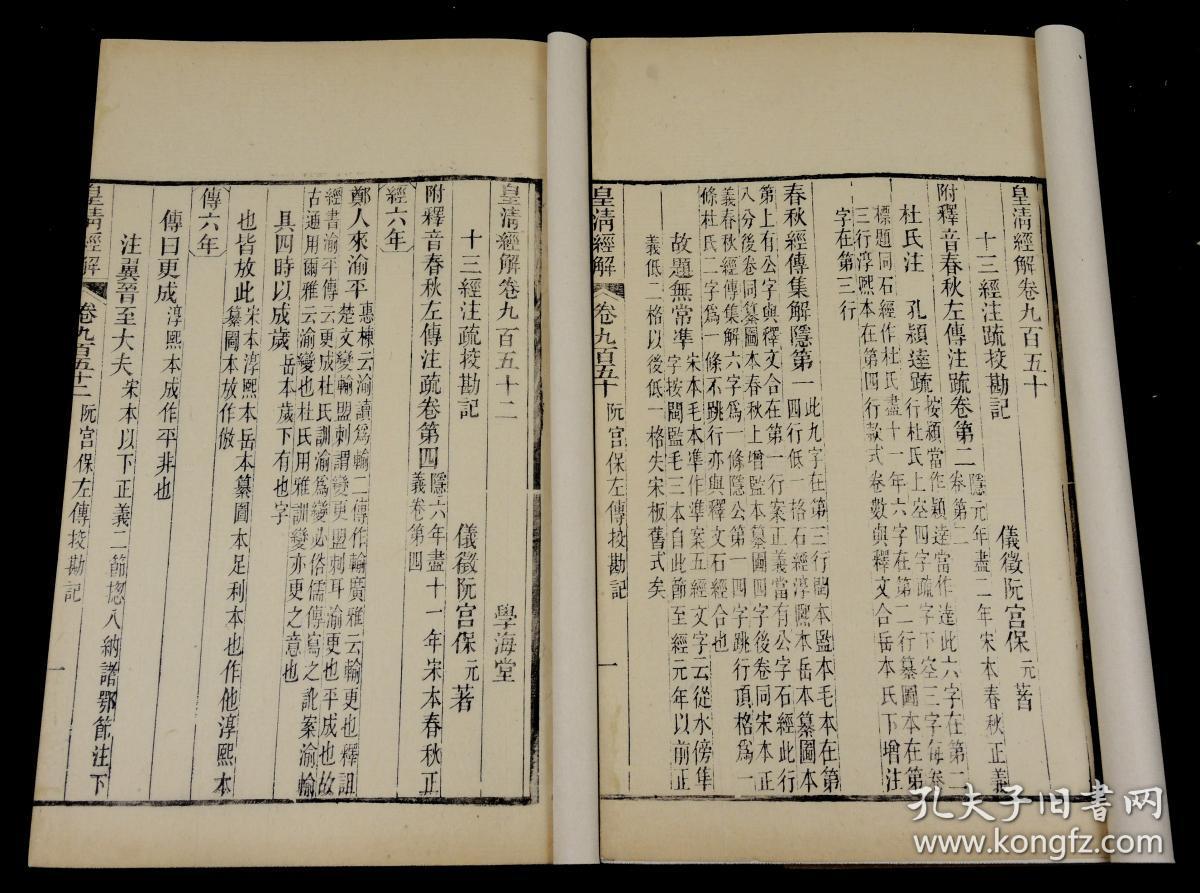 皇清經解卷九百五十
十三經注疏挍勘記
儀徵阮宮保元著
附釋音春秋左傳注疏卷第二隱元年盡二年宋本春秋正義卷第二
杜氏注 孔穎達疏
標題同石經作杜氏盡十一年六字在第二行纂圖本在第
三行淳熙本在第四行款式卷數與釋文合岳本氏下增注
字在第三行
春秋經傳集解隱第一
此九字在第三行閩本監本毛本在第
四行低一格石經淳熙本岳本纂圖本
第上有公字與釋文合在第一行案正義當有公字石經此行
八分後卷同纂圖本春秋上增監本纂圖四字後卷同宋本正
義春秋經傳集解六字爲一條隱公第一四字跳行頂格爲一
條杜氏二字爲一條不跳行亦與釋文石經合也
故題無常準
宋本毛本準作准案五經文字云從水傍隼
字按閩監毛三本自此節至經元年以前正
義低二格以後低一格失宋板舊式矣
皇清經解 卷九百五十 阮宮保左傳挍勘記 一
皇清經解卷九百五十二
學海堂
十三經注疏挍勘記
儀徵阮宮保元著
附釋音春秋左傳注疏卷第四隱六年盡十一年宋本春秋正義卷第四
經六年
鄭人來渝平
惠棟云渝讀爲輸二傳作輸廣雅云輸更也釋詛
楚文變輸盟刺謂變更盟刺耳渝更也平成也故
經書渝平傳云更成杜氏訓渝爲變必俗儒傳寫之訛案渝輸
古通用爾雅云渝變也杜氏用雅訓變亦更之意也
具四時以成歲岳本歲下有也字
也皆放此宋本淳熙本岳本纂圖本足利本也作他淳熙本
纂圖本放作倣
傳六年
傳曰更成淳熙本成作平非也
注翼晉至大夫宋本以下正義二節揔入納諸鄂節注下
皇清經解 卷九百五十二 阮宮保左傳挍勘記 一
孔夫子旧书网
www.kongfz.com